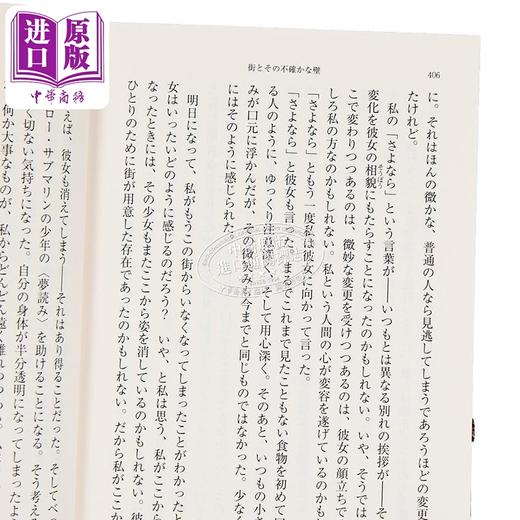 进口原版
中華商務
街とその不確かな壁
406
に。それはほんの微かな、普通の人なら見逃してしまうであろうほどの変更
たけれど。
私の「さよなら」という言葉が――いつもとは異なる別れの挨拶が――そ
変化を彼女の相貌にもたらすことになったのかもしれない。いや、そうでは
そうぼう
こで変わりつつあるのは、微妙な変更を受けつつあるのは、彼女の顔立ちで
しろ私の方なのかもしれない。私という人間の心が変容を遂げているのかも
「さよなら」ともう一度私は彼女に向かって言った。
「さよなら」と彼女も言った。まるでこれまで見たこともない食物を初めて口
る人のように、ゆっくり注意深く、そして用心深く。そのあと、いつもの小さ
みが口元に浮かんだが、その微笑みも今までと同じものではなかった。少なく
にはそのように感じられた。
明日になって、私がもうこの街からいなくなってしまったことがわかったと
女はいったいどのように感じるのだろう？　いや、と私は思う、私がここから
なったときには、その少女もまたここから姿を消しているのかもしれない。
ひとりのために街が用意した存在であったのかもしれない。だから私がここか
えば、彼女も消えてしまう――それはあり得ることだった。そしてべつ
ロー・サブマリンの少年の〈夢読み〉を助けることになる。そう考える
く切ない気持ちになった。自分の身体が半分透明になってしまったよう
何か大事なものが、私からどんどん遠く離れ